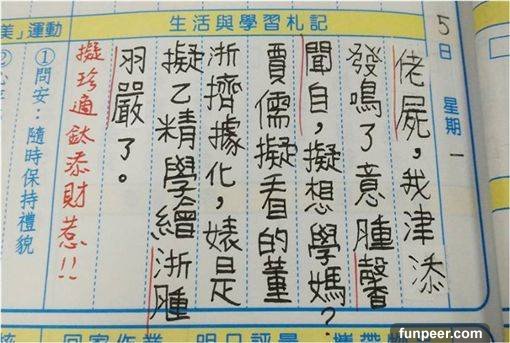 生活與學習札記
美」運動
5日 星期一
佬屍，我津添
發鳴了意腫馨
聞自，擬想學媽？
賈儒擬看的董
浙擠據化，婊是
擬乙精學繪浙腫
羽嚴了。
擬珍適鈦添財惹!!
①問安：隨時保持禮貌
回家作業
明日評量
funpeer.com